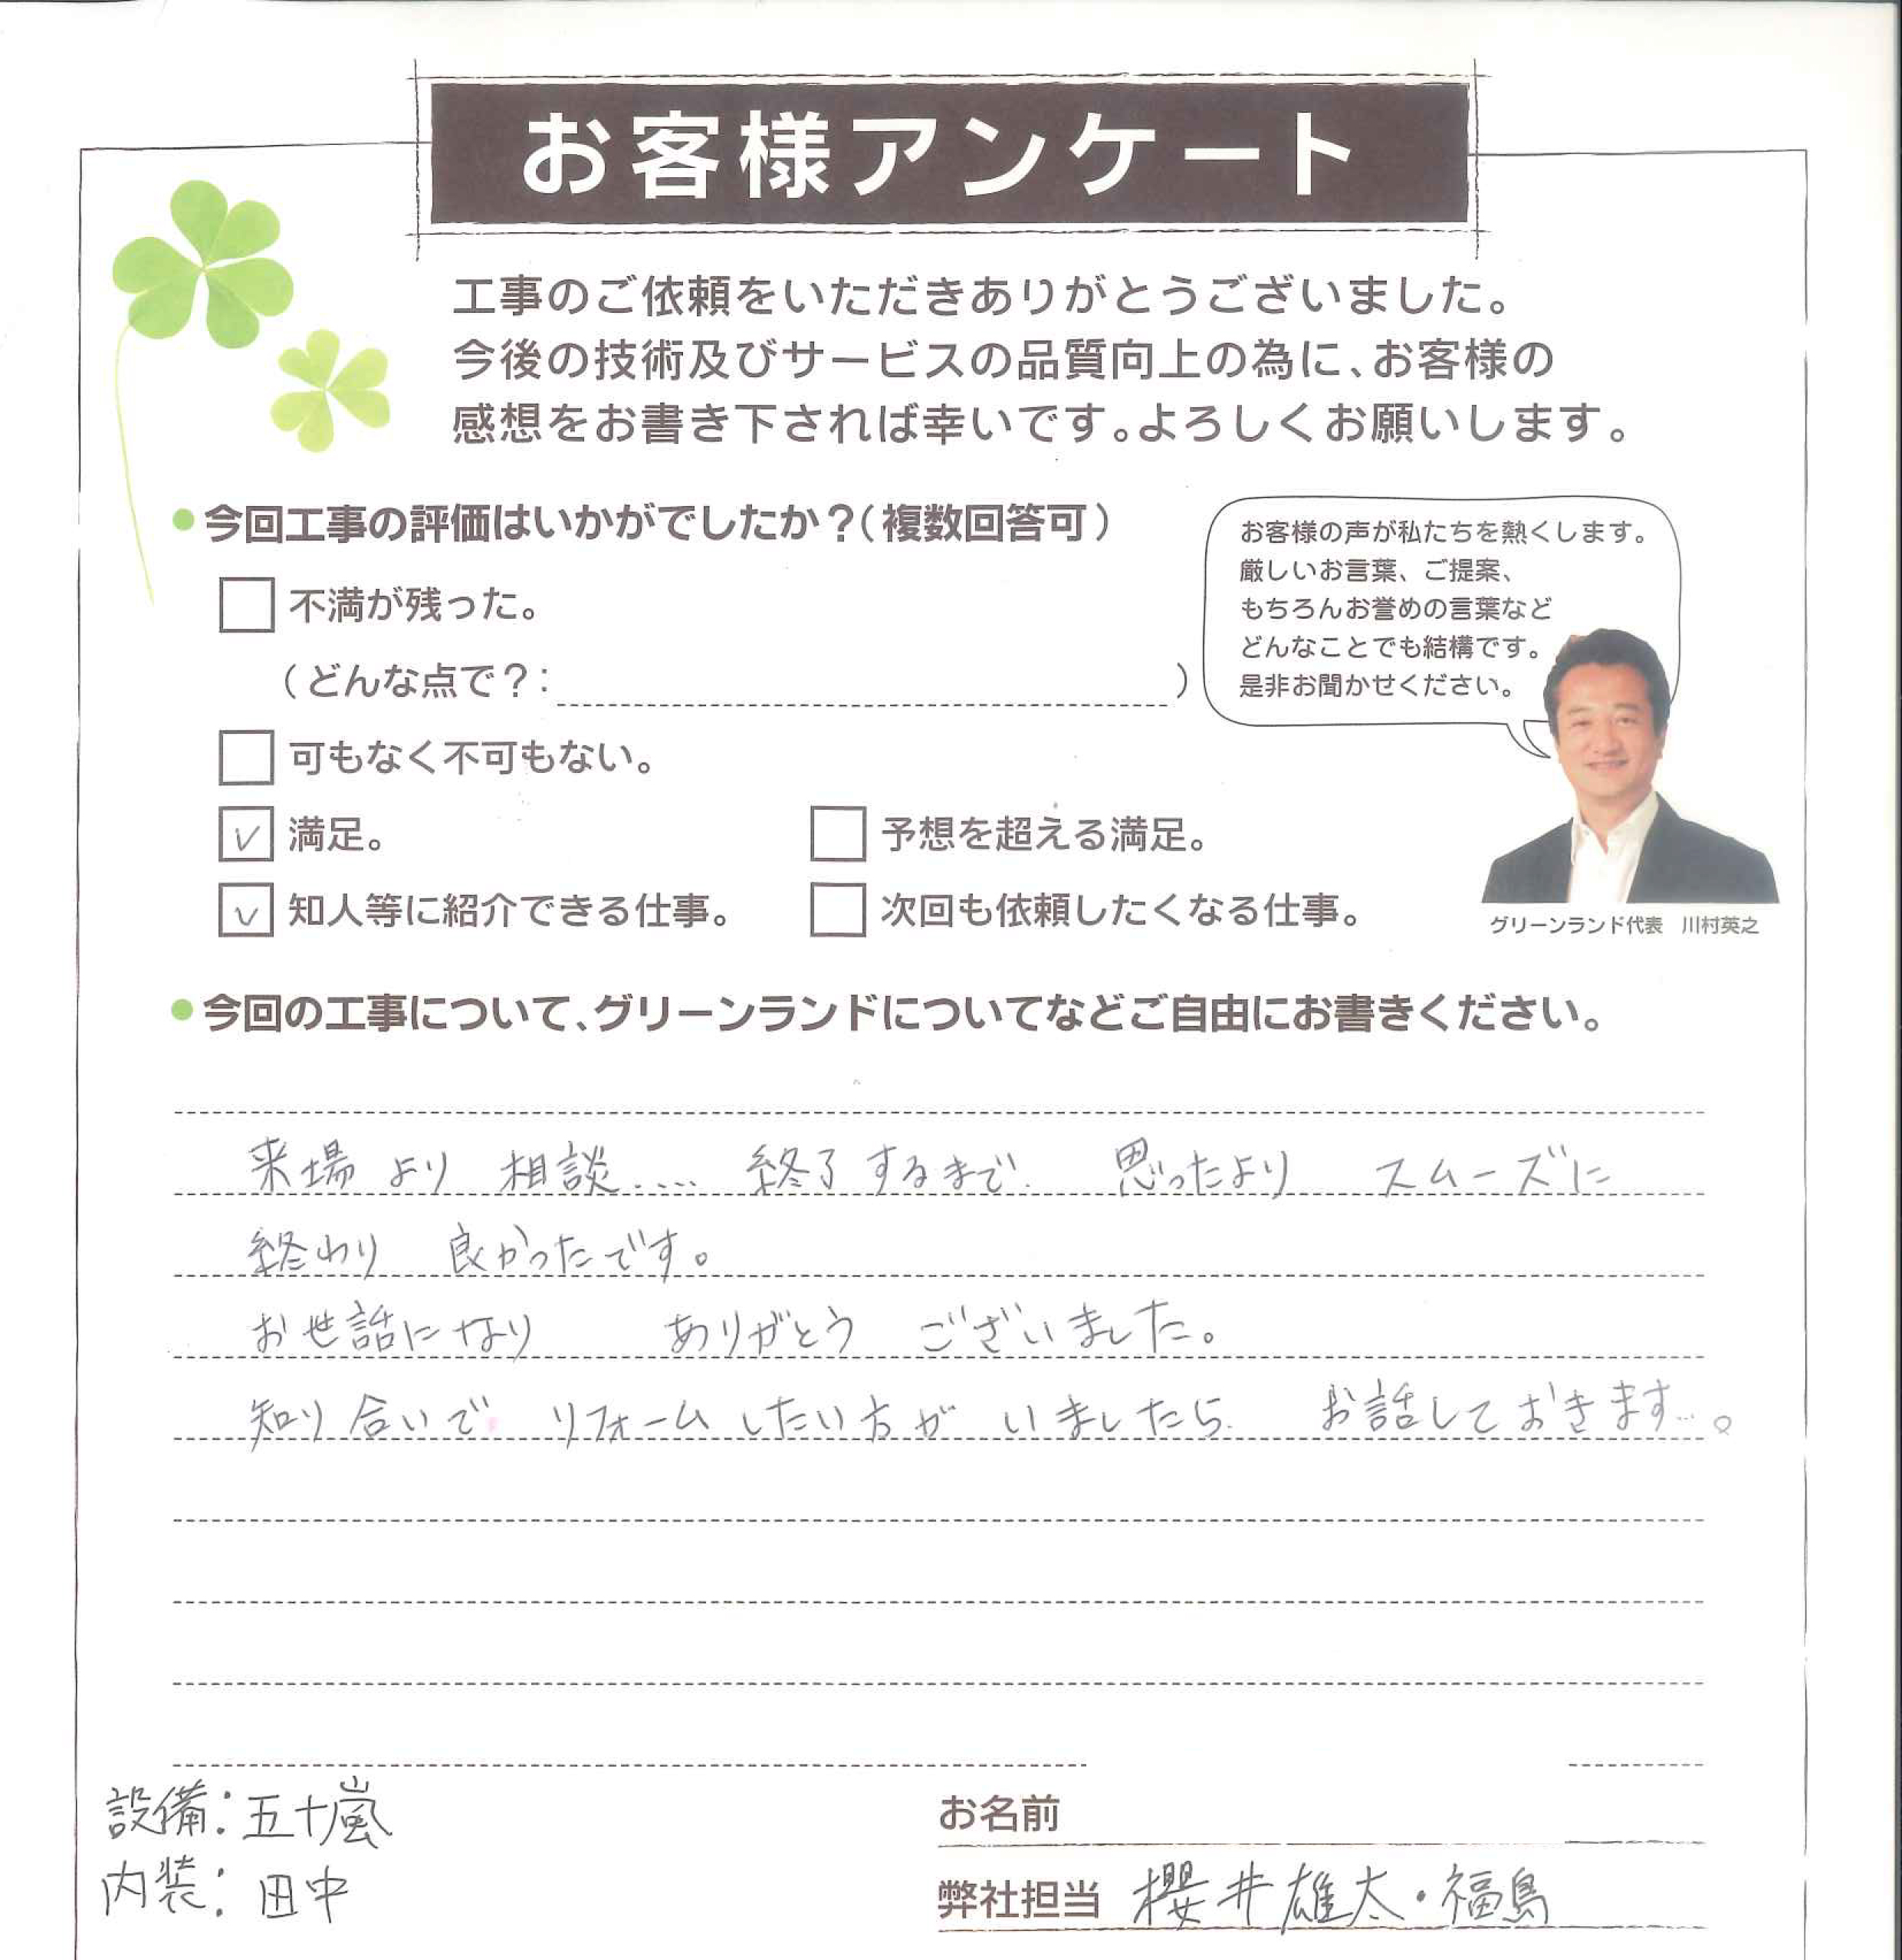 お客様アンケート
工事のご依頼をいただきありがとうございました。
今後の技術及びサービスの品質向上の為に、お客様の
感想をお書き下されば幸いです。よろしくお願いします。
●今回工事の評価はいかがでしたか？（複数回答可）
不満が残った。
（どんな点で？：　　　）
可もなく不可もない。
満足。
予想を超える満足。
知人等に紹介できる仕事。
次回も依頼したくなる仕事。
お客様の声が私たちを熱くします。
厳しいお言葉、ご提案、
もちろんお誉めの言葉など
どんなことでも結構です。
是非お聞かせください。
グリーンランド代表　川村英之
●今回の工事について、グリーンランドについてなどご自由にお書きください。
来場より 相談‥‥ 終了するまで 思ったより スムーズに
終わり 良かったです。
お世話になり ありがとう ございました。
知り合いで リフォームしたい方が いましたら お話しておきます…。
設備：五十嵐
内装：田中
お名前
弊社担当 櫻井雄太・福島